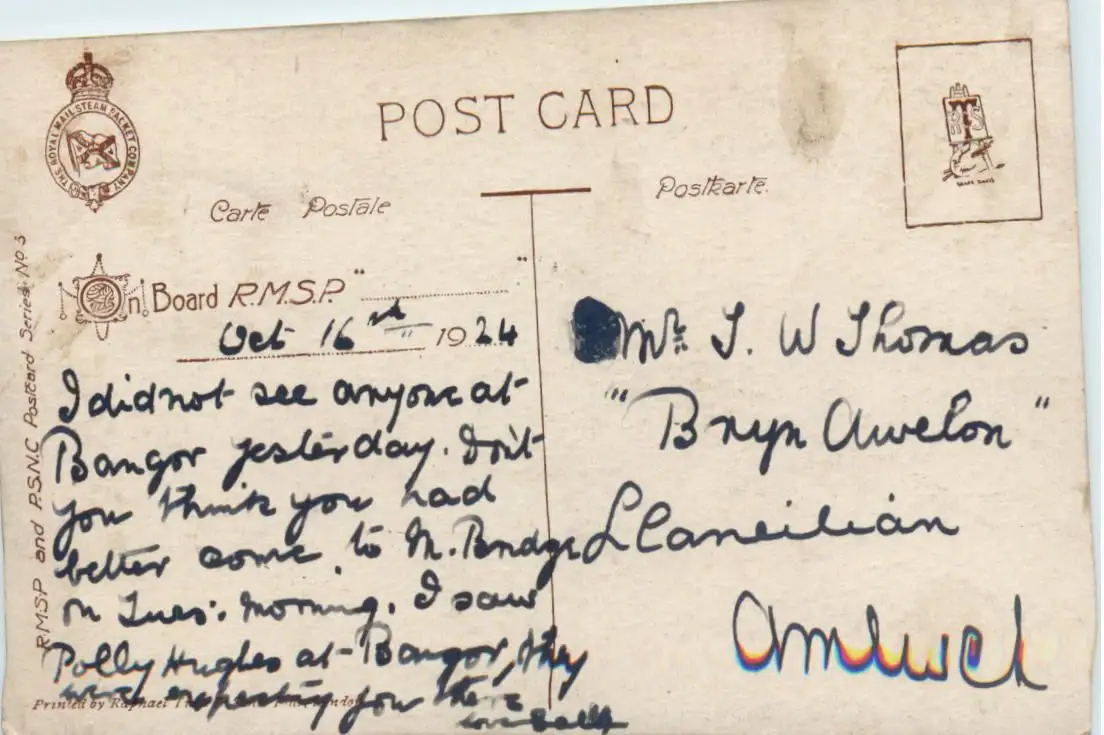 THE ROYAL MAIL STEAM PACKET COMPANY
POST CARD
Carte Postale
Postkarte.
R.M.S.P and P.S.N.C Postcard Series No 3
On Board R.M.S.P. " "
Oct 16th 1924
I did not see anyone at
Bangor yesterday. Don't
you think you had
better come to M. Bridge
on Tues: morning. I saw
Polly Hughes at Bangor, they
were expecting you there
Printed by Raphael
Mr. T. W Thomas
"Bryn Awelon"
Llaneilian
Amlwch